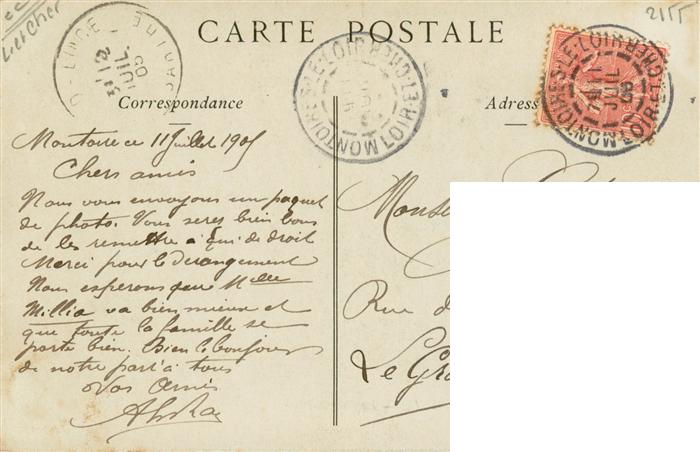 LoiretCher
2155
CARTE POSTALE
Correspondance
Adress
MONTOIRE-S-LE-LOIR LOIR-ET-CHER
MONTOIRE-S-LE-LOIR LOIR-ET-CHER
11
JUIL
05
12
JUIL
05
Montoire ce 11 Juillet 1905
Chers amis
Nous vous envoyons un paquet
de photo. Vous seres bien bons
de les remettre à qui de droit
Merci pour le derangement
Nous esperons que Melle
Millia va bien mieux et
que toute la famille se
porte bien. Bien le bonjour
de notre part à tous
Vos Amis
Rue d
Le Gr